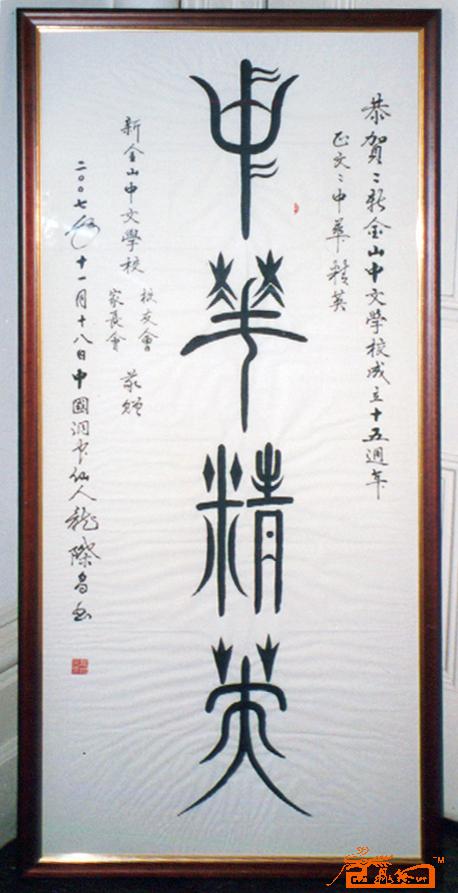 恭賀：新金山中文學校成立十五週年
正文：中華精英
中華精英
新金山中文學校
校友會
家長會
敬贈
二〇〇七年十一月十八日中國洞穴仙人龍際